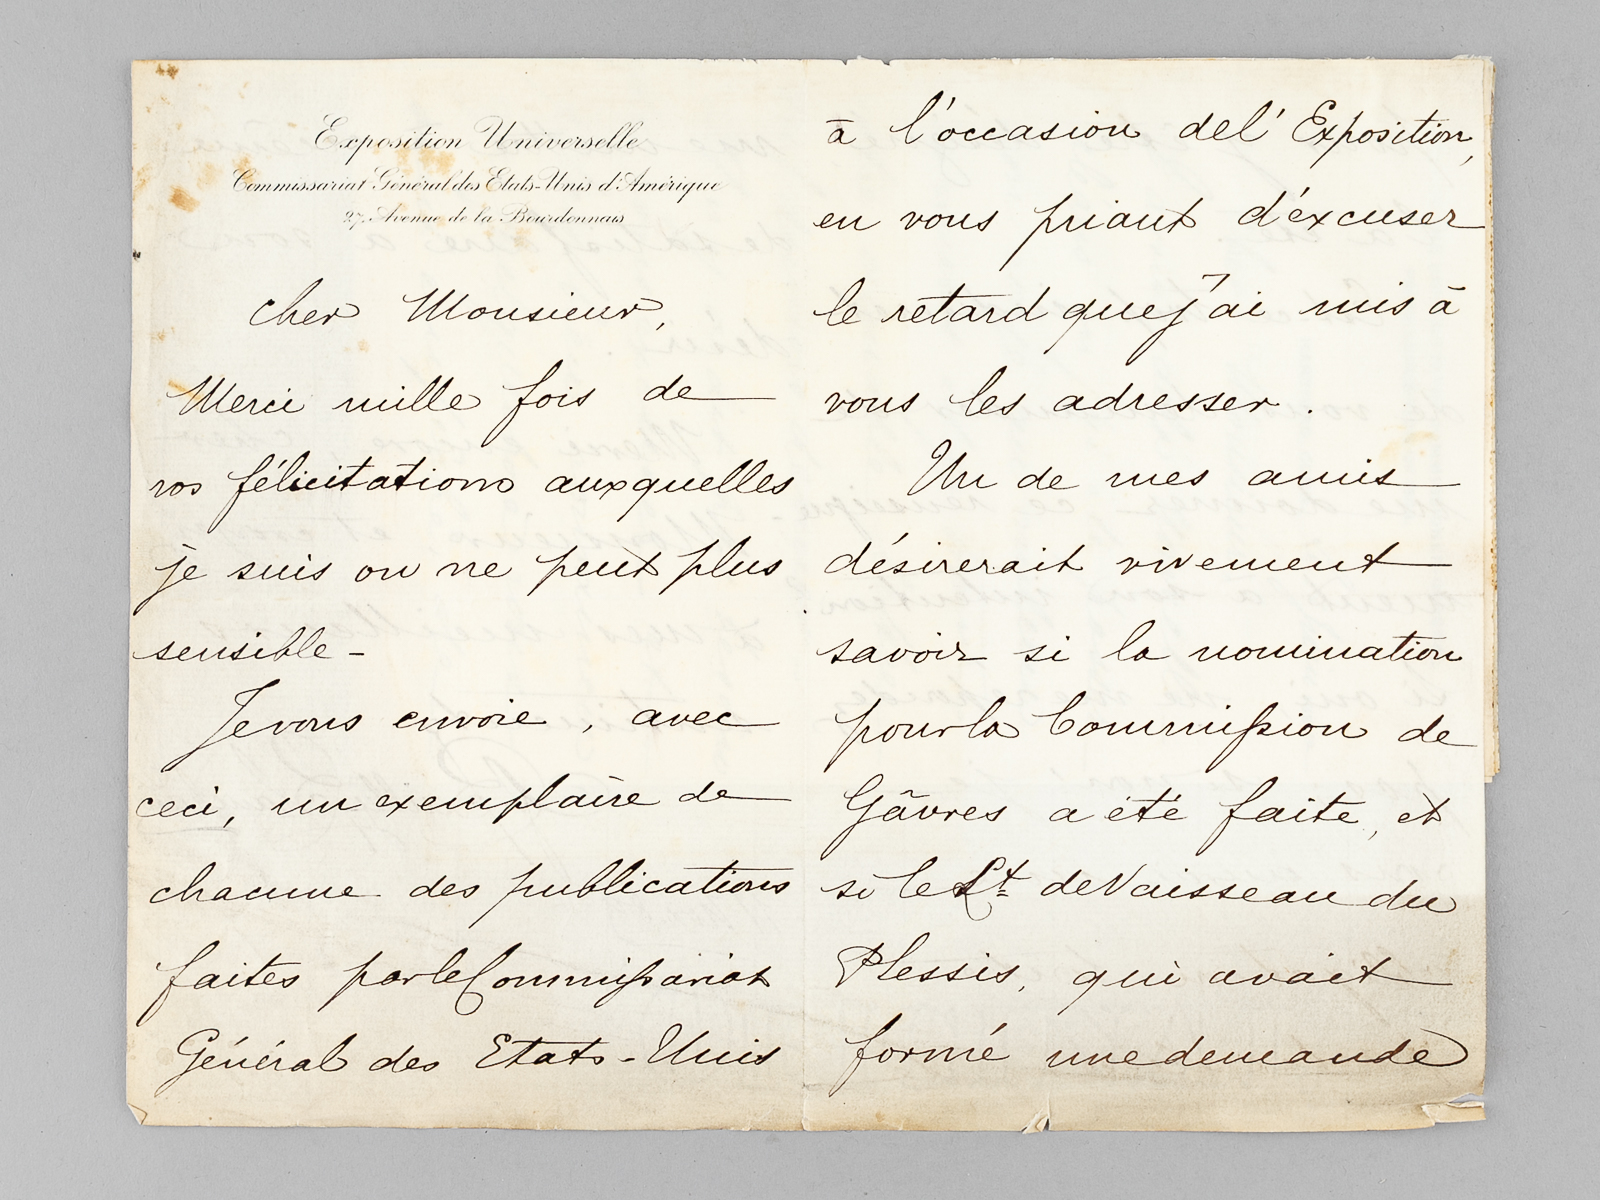 Exposition Universelle
Commissariat Général des Etats-Unis d'Amérique
27, Avenue de la Bourdonnais
Cher Monsieur,
Merci mille fois de
vos félicitations auxquelles
je suis on ne peut plus
sensible -
Je vous envoie, avec
ceci, un exemplaire de
chacune des publications
faites par le Commissariat
Général des Etats-Unis
à l'occasion de l'Exposition,
en vous priant d'éxcuser
le retard que j'ai mis à
vous les adresser.
Un de mes amis
désirerait vivement
savoir si la nomination
pour la Commission de
Gâvres a été faite, et
si le Lt de Vaisseau du
Plessis, qui avait
formé une demande